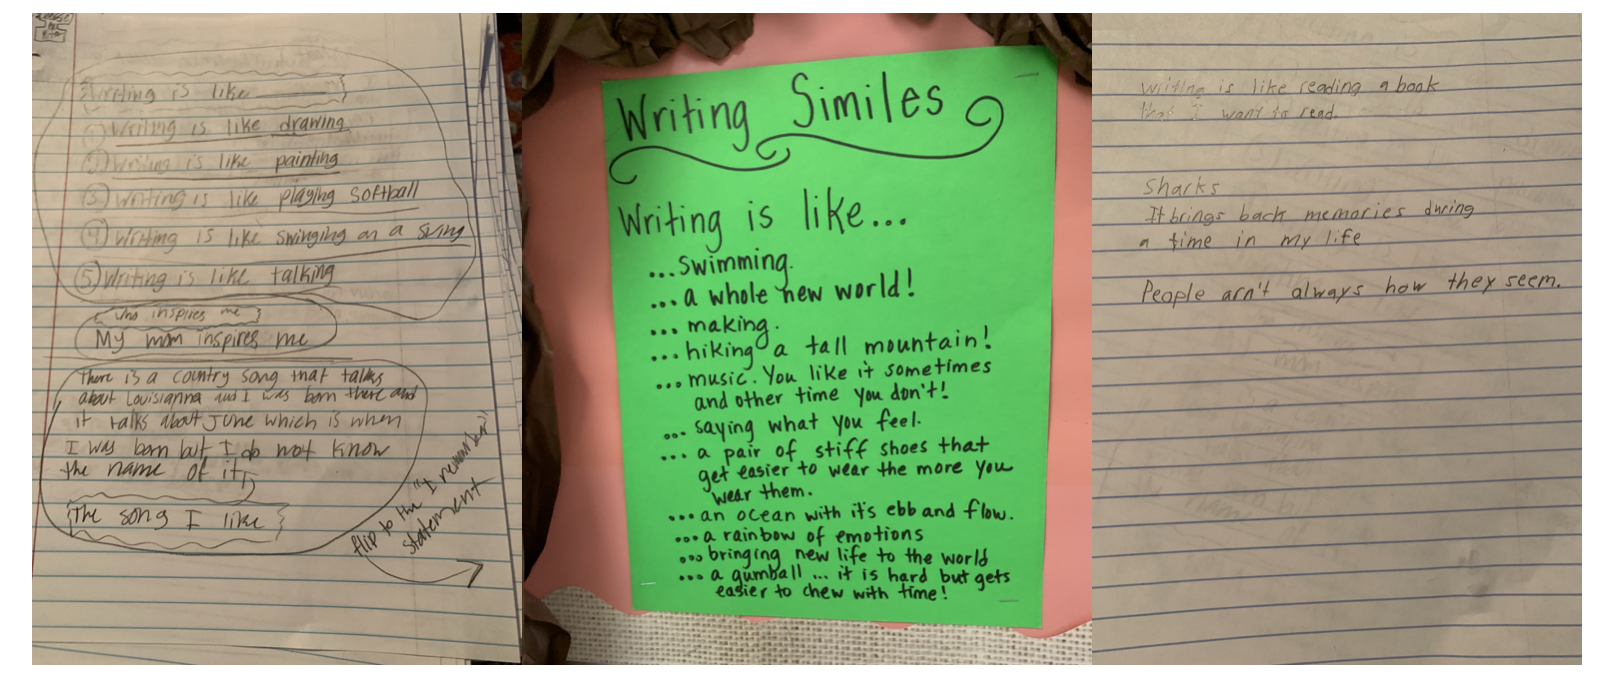 Writing is like
① Writing is like drawing
② Writing is like painting
③ Writing is like playing softball
④ Writing is like swinging on a swing
⑤ Writing is like talking
who inspires me
My mom inspires me
There is a country song that talks
about Louisianna and I was born there and
it talks about June which is when
I was born but I do not know
the name of it
The song I like
flip to the "I remember"
statement
Writing Similes
Writing is like...
...swimming.
...a whole new world!
...making.
...hiking a tall mountain!
...music. You like it sometimes
and other time you don't!
...saying what you feel.
...a pair of stiff shoes that
get easier to wear the more you
wear them.
...an ocean with it's ebb and flow.
...a rainbow of emotions
...bringing new life to the world
...a gumball ... it is hard but gets
easier to chew with time!
writing is like reading a book
that I want to read.
Sharks
It brings back memories during
a time in my life
People arn't always how they seem.